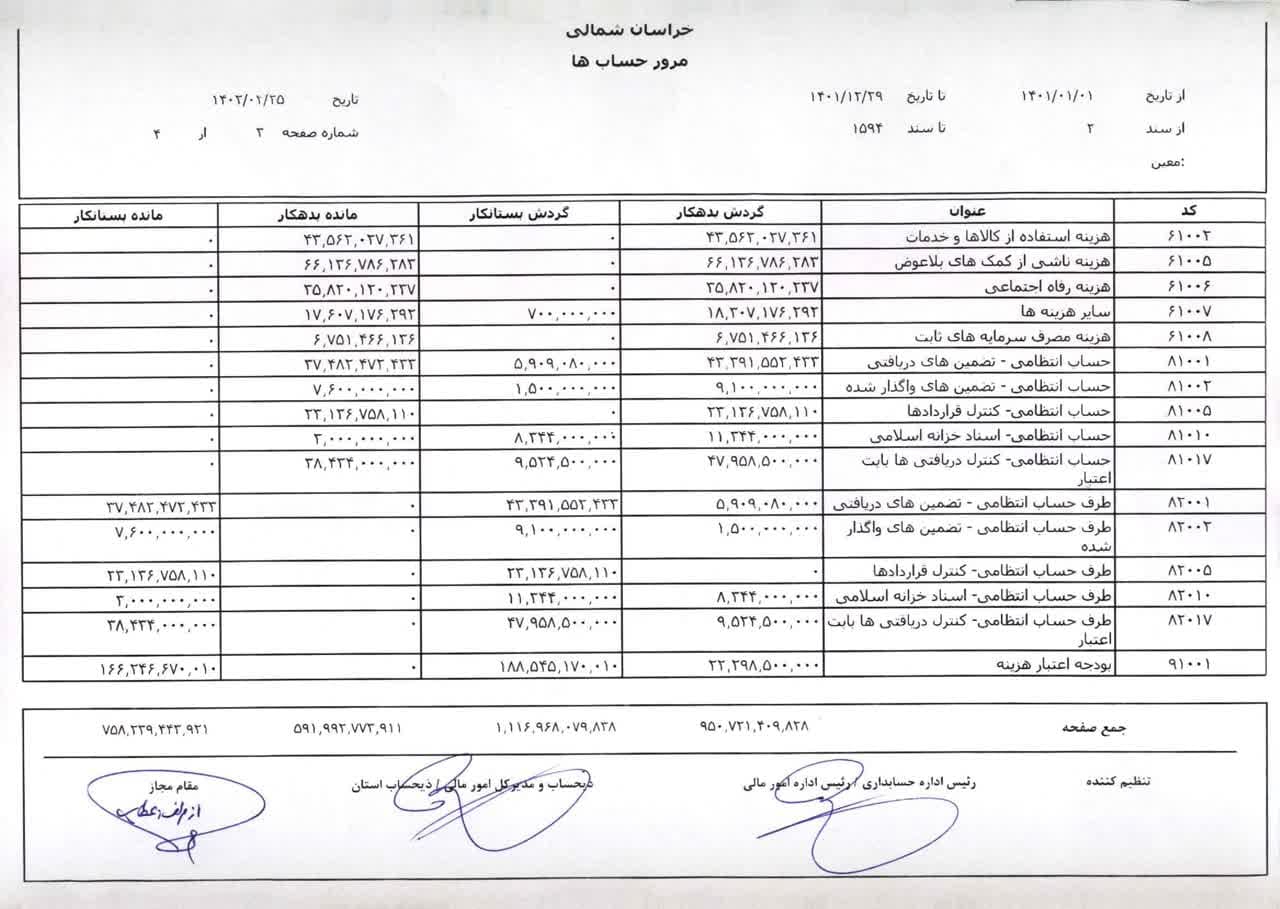 خراسان شمالی
مرور حساب ها
از تاریخ ۱۴۰۱/۰۱/۰۱ تا تاریخ ۱۴۰۱/۱۲/۲۹ تاریخ ۱۴۰۲/۰۲/۲۵
از سند ۲ تا سند ۱۵۹۴ شماره صفحه ۳ از ۴
معین:
کد عنوان گردش بدهکار گردش بستانکار مانده بدهکار مانده بستانکار
۶۱۰۰۲ هزینه استفاده از کالاها و خدمات ۴۳,۵۶۲,۰۲۷,۳۶۱ ۰ ۴۳,۵۶۲,۰۲۷,۳۶۱ ۰
۶۱۰۰۵ هزینه ناشی از کمک های بلاعوض ۶۶,۱۳۶,۷۸۶,۲۸۳ ۰ ۶۶,۱۳۶,۷۸۶,۲۸۳ ۰
۶۱۰۰۶ هزینه رفاه اجتماعی ۳۵,۸۲۰,۱۲۰,۲۳۷ ۰ ۳۵,۸۲۰,۱۲۰,۲۳۷ ۰
۶۱۰۰۷ سایر هزینه ها ۱۸,۳۰۷,۱۷۶,۲۹۲ ۷۰۰,۰۰۰,۰۰۰ ۱۷,۶۰۷,۱۷۶,۲۹۲ ۰
۶۱۰۰۸ هزینه مصرف سرمایه های ثابت ۶,۷۵۱,۴۶۶,۱۳۶ ۰ ۶,۷۵۱,۴۶۶,۱۳۶ ۰
۸۱۰۰۱ حساب انتظامی - تضمین های دریافتی ۴۳,۳۹۱,۵۵۲,۴۳۳ ۵,۹۰۹,۰۸۰,۰۰۰ ۳۷,۴۸۲,۴۷۲,۴۳۳ ۰
۸۱۰۰۲ حساب انتظامی - تضمین های واگذار شده ۹,۱۰۰,۰۰۰,۰۰۰ ۱,۵۰۰,۰۰۰,۰۰۰ ۷,۶۰۰,۰۰۰,۰۰۰ ۰
۸۱۰۰۵ حساب انتظامی- کنترل قراردادها ۲۳,۱۳۶,۷۵۸,۱۱۰ ۰ ۲۳,۱۳۶,۷۵۸,۱۱۰ ۰
۸۱۰۱۰ حساب انتظامی- اسناد خزانه اسلامی ۱۱,۳۴۴,۰۰۰,۰۰۰ ۸,۳۴۴,۰۰۰,۰۰۰ ۳,۰۰۰,۰۰۰,۰۰۰ ۰
۸۱۰۱۷ حساب انتظامی- کنترل دریافتی ها بابت ۴۷,۹۵۸,۵۰۰,۰۰۰ ۹,۵۲۴,۵۰۰,۰۰۰ ۳۸,۴۳۴,۰۰۰,۰۰۰ ۰
اعتبار
۸۲۰۰۱ طرف حساب انتظامی - تضمین های دریافتی ۵,۹۰۹,۰۸۰,۰۰۰ ۴۳,۳۹۱,۵۵۲,۴۳۳ ۰ ۳۷,۴۸۲,۴۷۲,۴۳۳
۸۲۰۰۲ طرف حساب انتظامی - تضمین های واگذار ۱,۵۰۰,۰۰۰,۰۰۰ ۹,۱۰۰,۰۰۰,۰۰۰ ۰ ۷,۶۰۰,۰۰۰,۰۰۰
شده
۸۲۰۰۵ طرف حساب انتظامی- کنترل قراردادها ۰ ۲۳,۱۳۶,۷۵۸,۱۱۰ ۰ ۲۳,۱۳۶,۷۵۸,۱۱۰
۸۲۰۱۰ طرف حساب انتظامی- اسناد خزانه اسلامی ۸,۳۴۴,۰۰۰,۰۰۰ ۱۱,۳۴۴,۰۰۰,۰۰۰ ۰ ۳,۰۰۰,۰۰۰,۰۰۰
۸۲۰۱۷ طرف حساب انتظامی- کنترل دریافتی ها بابت ۹,۵۲۴,۵۰۰,۰۰۰ ۴۷,۹۵۸,۵۰۰,۰۰۰ ۰ ۳۸,۴۳۴,۰۰۰,۰۰۰
اعتبار
۹۱۰۰۱ بودجه اعتبار هزینه ۲۲,۲۹۸,۵۰۰,۰۰۰ ۱۸۸,۵۴۵,۱۷۰,۰۱۰ ۰ ۱۶۶,۲۴۶,۶۷۰,۰۱۰
جمع صفحه ۹۵۰,۷۲۱,۴۰۹,۸۲۸ ۱,۱۱۶,۹۶۸,۰۷۹,۸۳۸ ۵۹۱,۹۹۲,۷۷۳,۹۱۱ ۷۵۸,۲۳۹,۴۴۳,۹۲۱
تنظیم کننده رئیس اداره حسابداری / رئیس اداره امور مالی ذیحساب و مدیرکل امور مالی / ذیحساب استان مقام مجاز
از طرف